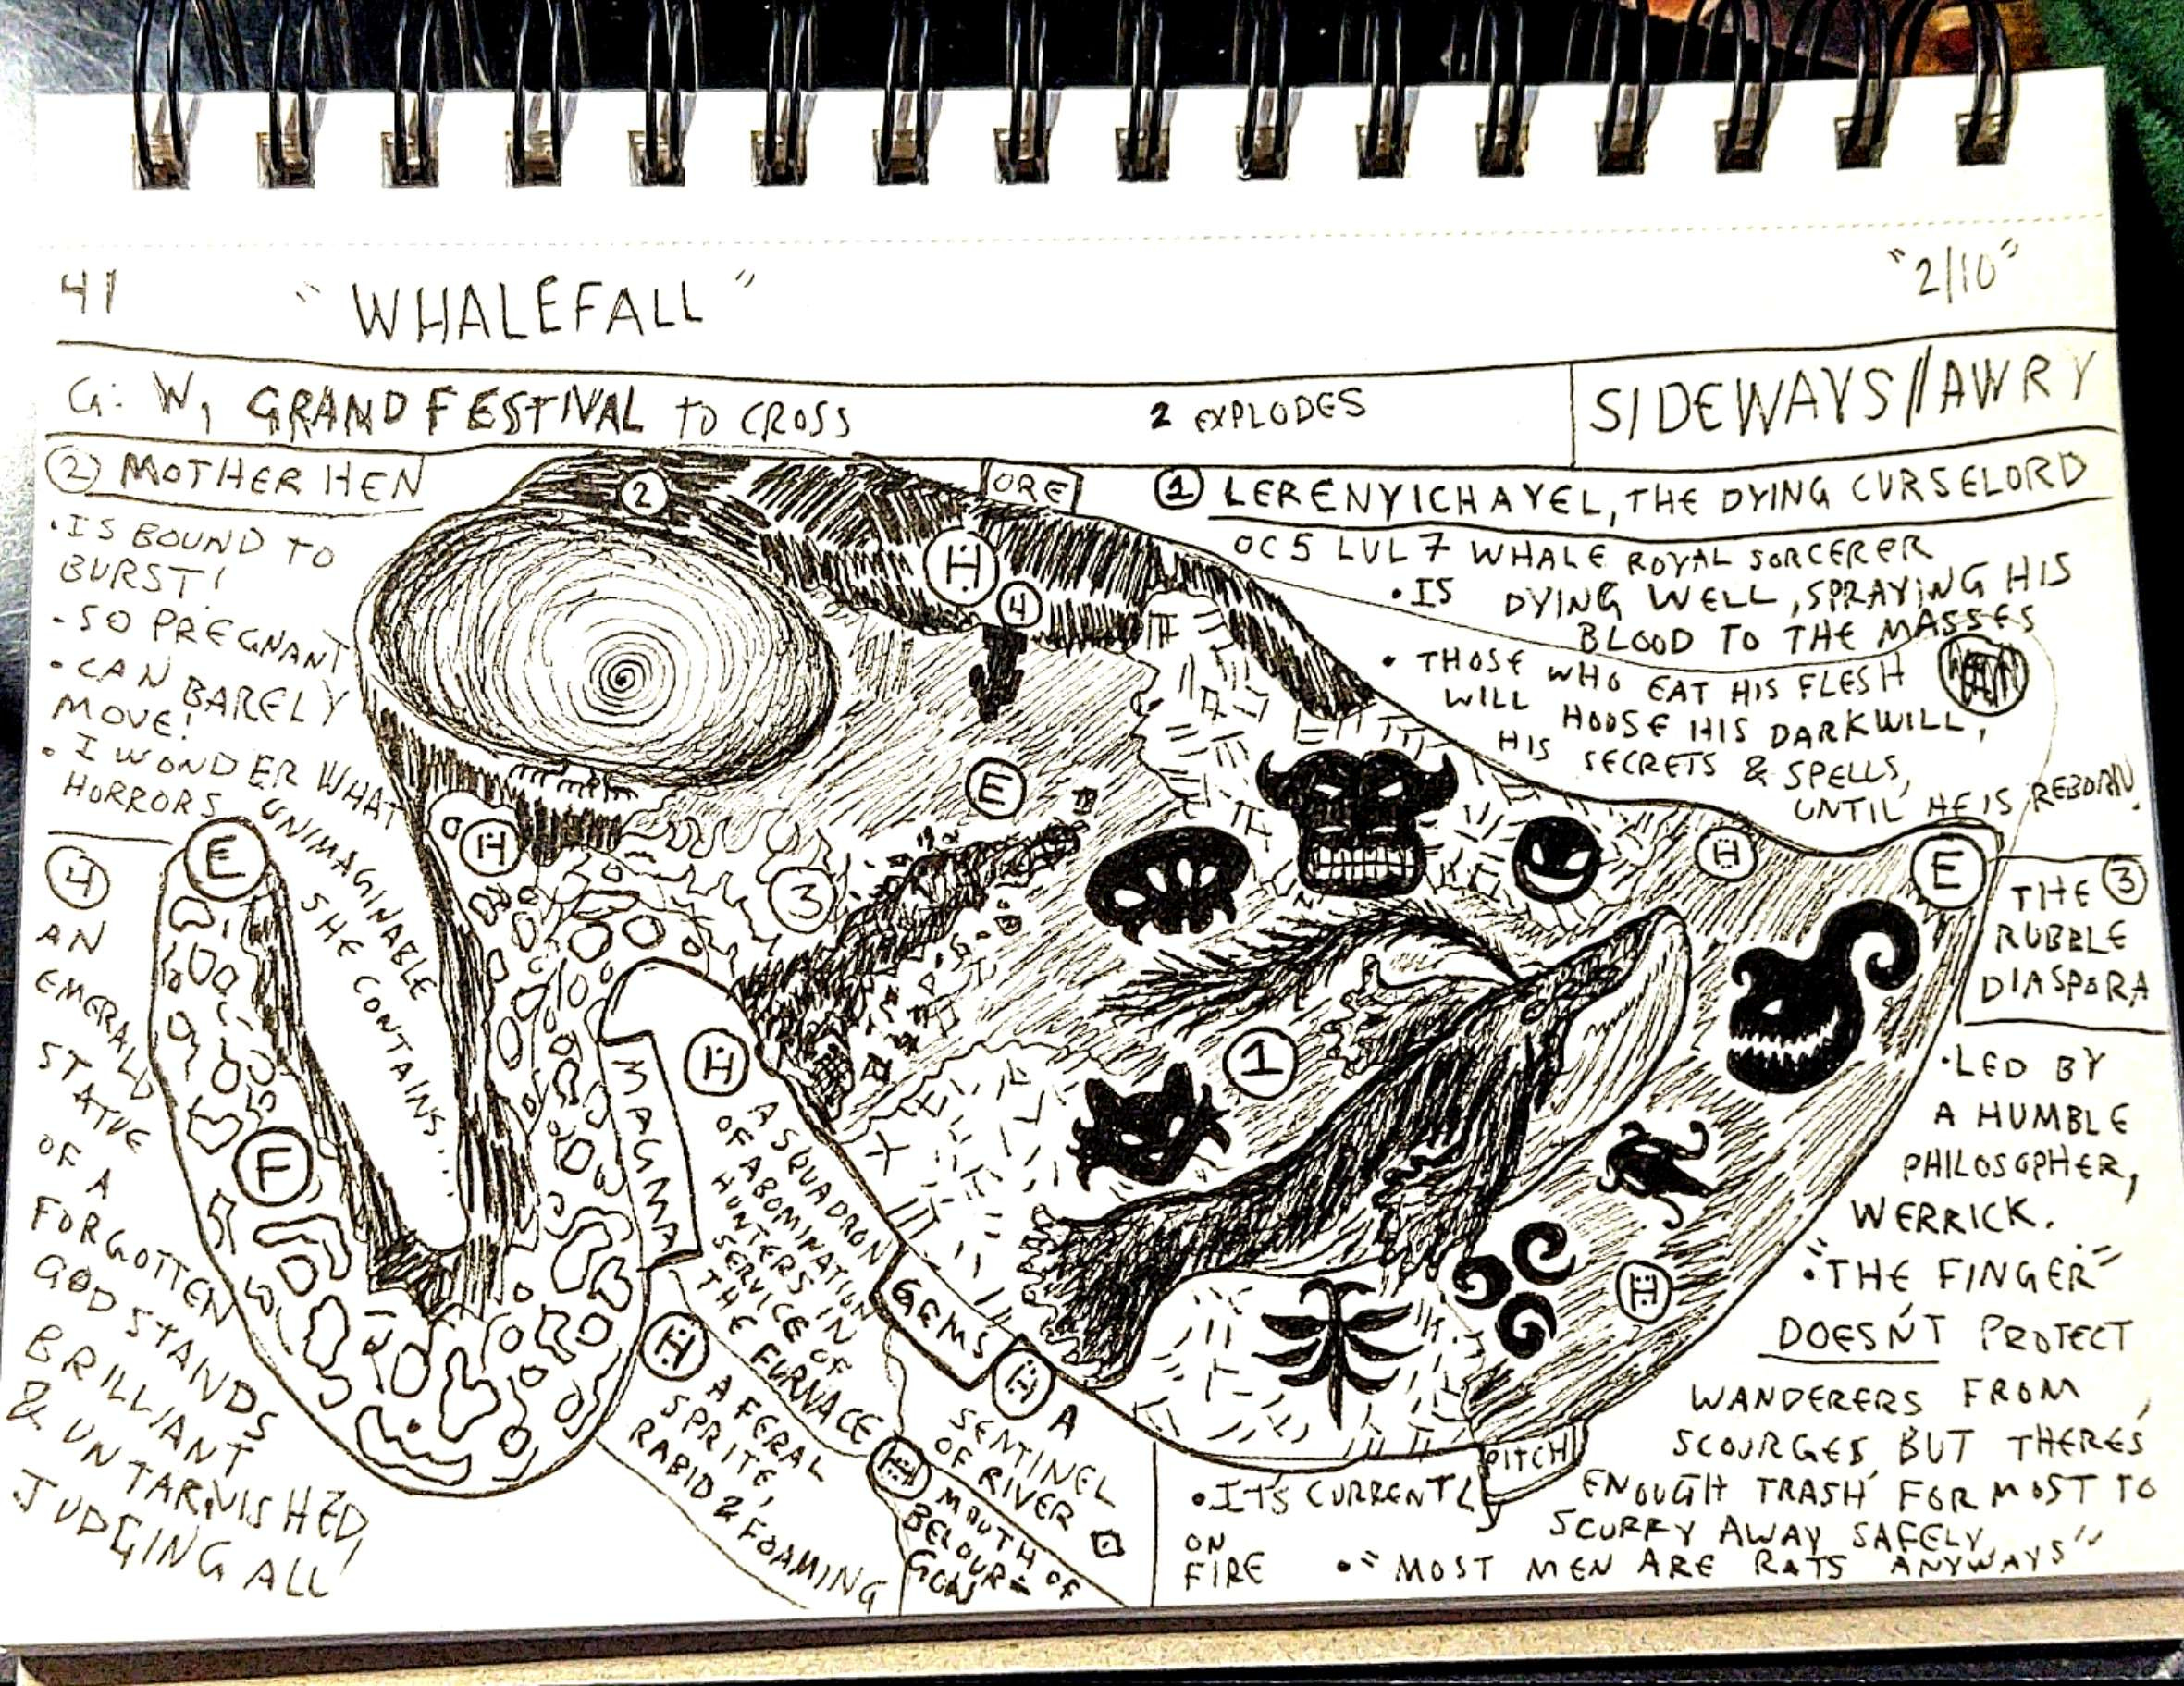 41
"WHALEFALL"
"2/10"
G: W, GRAND FESTIVAL TO CROSS
2 EXPLODES
SIDEWAYS//AWRY
② MOTHER HEN
•IS BOUND TO
BURST!
•SO PREGNANT
•CAN BARELY
MOVE!
•I WONDER WHAT
HORRORS UNIMAGINABLE
SHE CONTAINS...
2
ORE
H
4
① LERENYICHAYEL, THE DYING CURSELORD
OC5 LVL7 WHALE ROYAL SORCERER
•IS DYING WELL, SPRAYING HIS
BLOOD TO THE MASSES
• THOSE WHO EAT HIS FLESH
WILL HOUSE HIS DARKWILL,
HIS SECRETS & SPELLS,
UNTIL HE IS REBORN.
E
H
3
E
H
E
1
F
H
④
AN
EMERALD
STATUE
OF A
FORGOTTEN
GOD STANDS
BRILLIANT
& UNTARNISHED,
JUDGING ALL
MAGMA
Ḧ A SQUADRON
OF ABOMINATION
HUNTERS IN
SERVICE OF
THE FURNACE
GEMS
H A FERAL
SPRITE,
RABID & FOAMING
H A
SENTINEL
OF RIVER
H MOUTH OF
BELOUR-
GON
PITCH
THE ③
RUBBLE
DIASPORA
•LED BY
A HUMBLE
PHILOSOPHER,
WERRICK.
•"THE FINGER"
DOESN'T PROTECT
WANDERERS FROM
SCOURGES, BUT THERE'S
ENOUGH TRASH FOR MOST TO
SCURRY AWAY SAFELY
•IT'S CURRENTLY
ON
FIRE
•"MOST MEN ARE RATS ANYWAYS"